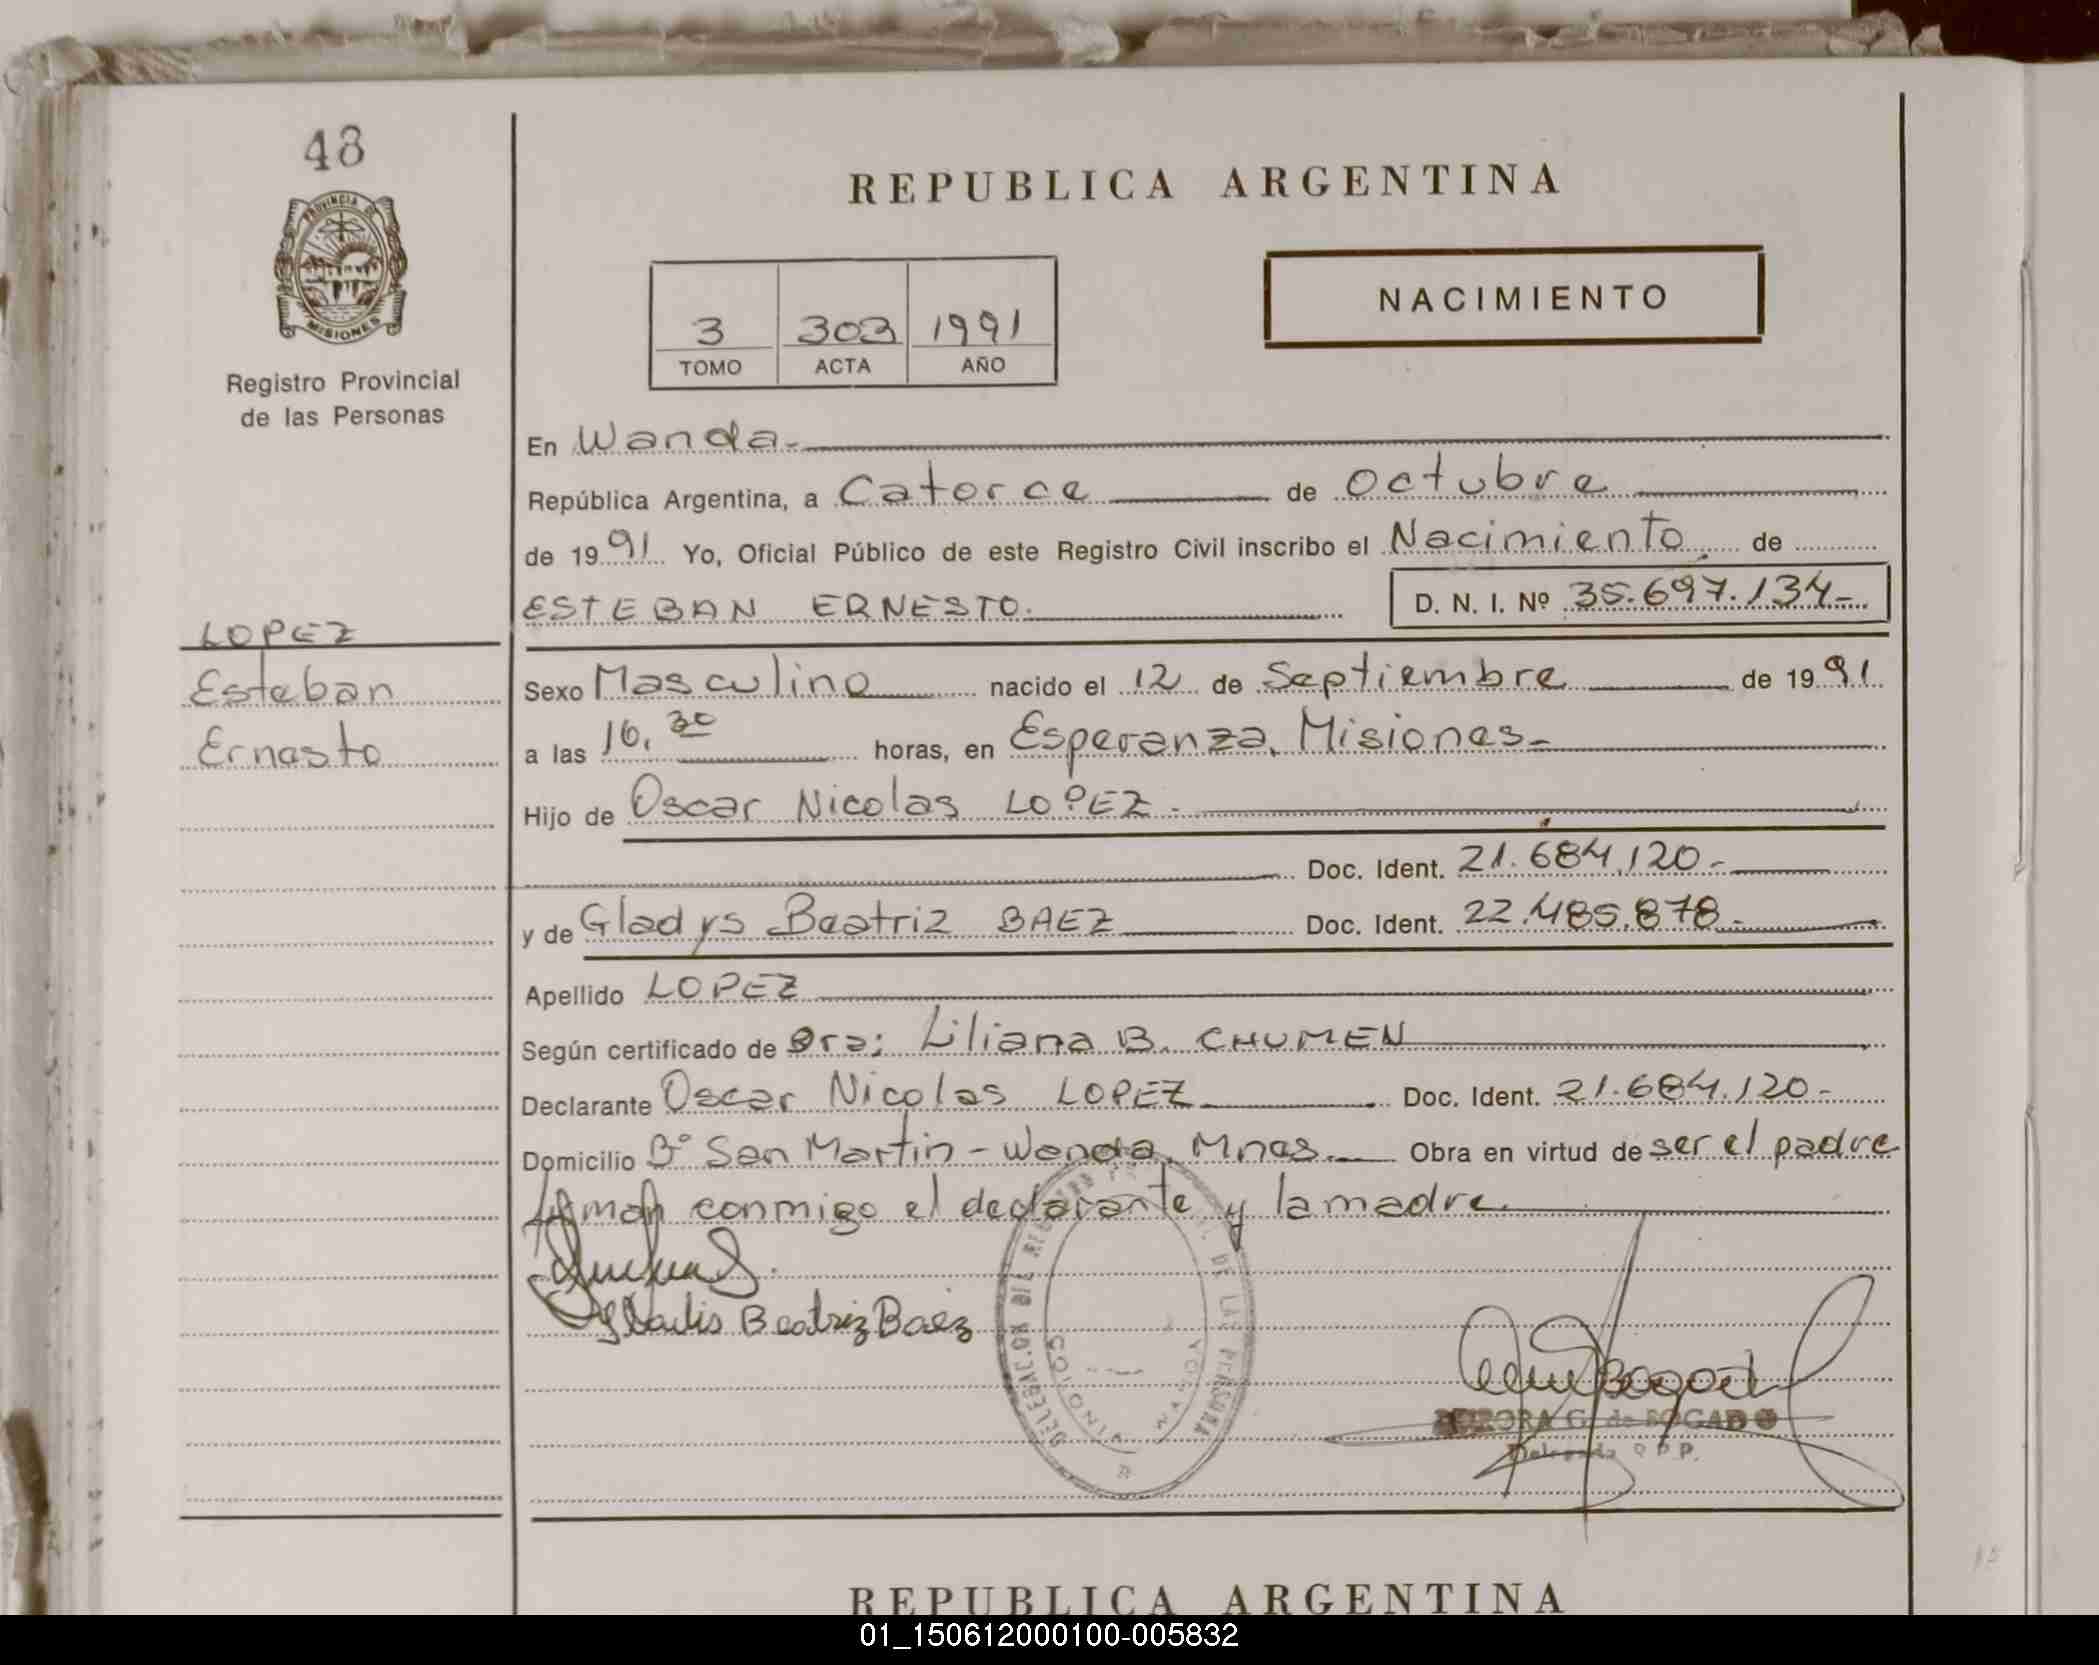 48
PROVINCIA DE
MISIONES
Registro Provincial
de las Personas
LOPEZ
Esteban
Ernesto
REPUBLICA ARGENTINA
3 303 1991
TOMO ACTA AÑO
NACIMIENTO
En Wanda.
República Argentina, a Catorce de octubre
de 1991. Yo, Oficial Público de este Registro Civil inscribo el Nacimiento de
ESTEBAN ERNESTO. D. N. I. Nº 35.697.134-
Sexo Masculino nacido el 12 de Septiembre de 1991.
a las 16,30 horas, en Esperanza, Misiones-
Hijo de Oscar Nicolas LOPEZ.
Doc. Ident. 21.684.120-
y de Gladys Beatriz BAEZ Doc. Ident. 22.485.878.
Apellido LOPEZ
Según certificado de Dra; Liliana B. CHUMEN
Declarante Oscar Nicolas LOPEZ Doc. Ident. 21.684.120-
Domicilio Bº San Martin - Wanda, Mnes. Obra en virtud de ser el padre
firman conmigo el declarante y la madre.
Gladis Beatriz Baez
DE LAS PERSONAS
AURORA G. de BOGADO
Delegada
REPUBLICA ARGENTINA
01_150612000100-005832